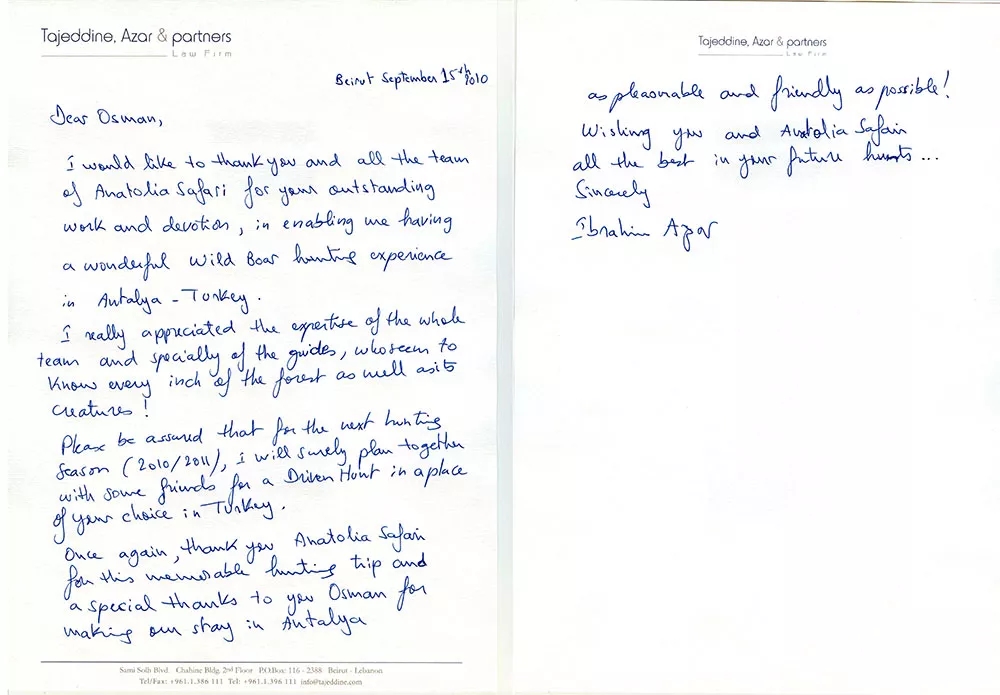 Tajeddine, Azar & partners
Law Firm
Beirut September 15th 2010
Dear Osman,
I would like to thank you and all the team
of Anatolia Safari for your outstanding
work and devotion, in enabling me having
a wonderful Wild Boar hunting experience
in Antalya - Turkey.
I really appreciated the expertise of the whole
team and specially of the guides, who seem to
know every inch of the forest as well as its
creatures!
Please be assured that for the next hunting
season (2010/2011), i will surely plan together
with some friends for a Driven Hunt in a place
of your choice in Turkey.
Once again, thank you Anatolia Safari
for this memorable hunting trip and
a special thanks to you Osman for
making our stay in Antalya
Sami Solh Blvd. Chahine Bldg. 2nd Floor P.O.Box: 116 - 2388 Beirut - Lebanon
Tel/Fax: +961.1.386 111 Tel: +961.1.396 111 info@tajeddine.com
Tajeddine, Azar & partners
Law Firm
as pleasonable and friendly as possible!
Wishing you and Anatolia Safari
all the best in your future hunts...
Sincerely
Ibrahim Azar